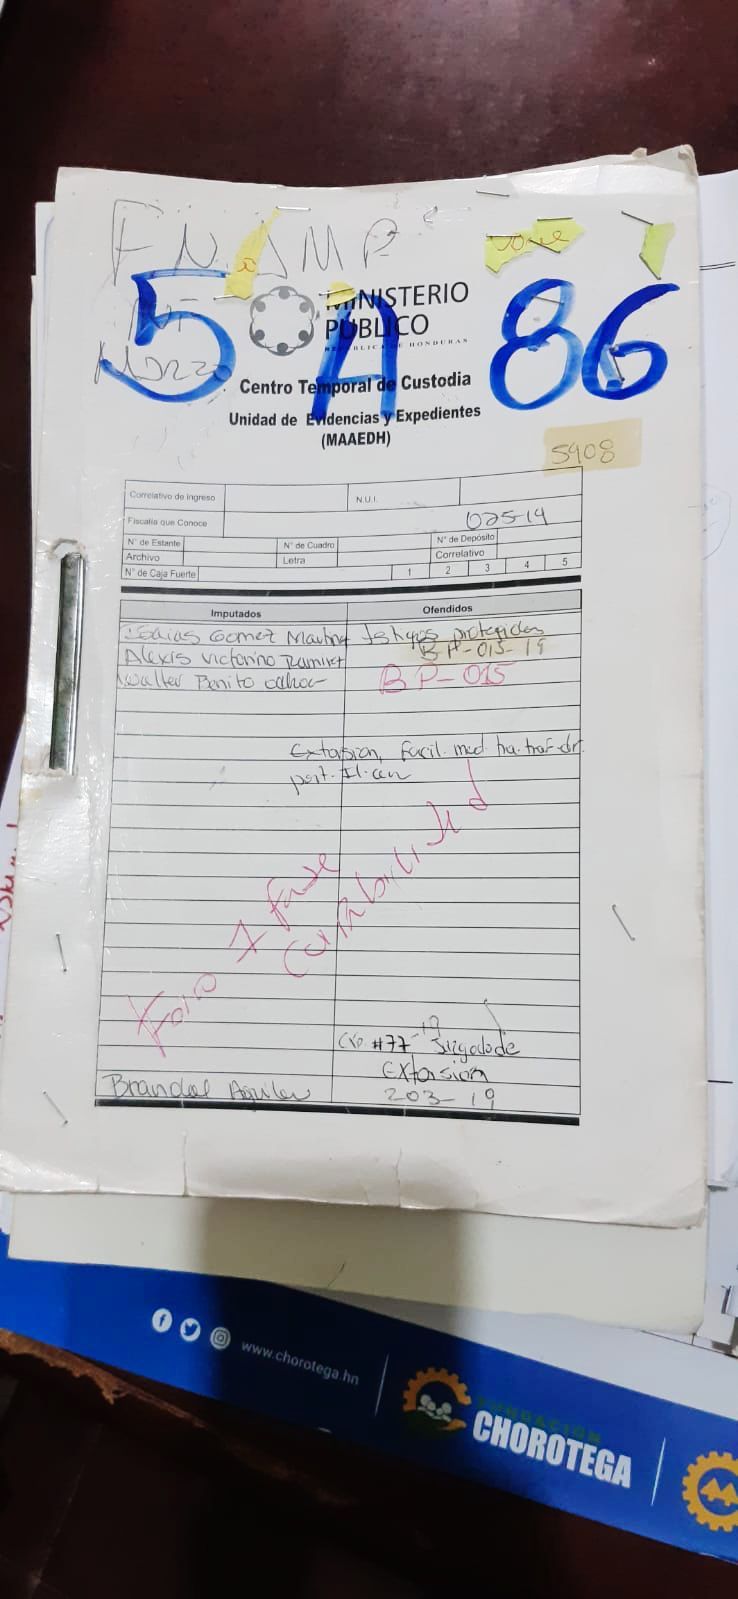 FNAMP
vone
5 A 86
MINISTERIO
PÚBLICO
REPUBLICA DE HONDURAS
Centro Temporal de Custodia
Unidad de Evidencias y Expedientes
(MAAEDH)
5908
Correlativo de Ingreso N.U.I.
Fiscalía que Conoce 025-19
N° de Estante N° de Cuadro N° de Depósito
Archivo Letra Correlativo
N° de Caja Fuerte 1 2 3 4 5
Imputados Ofendidos
Isaias Gomez Testigos protegidos
Alexis Victorino Ramirez BP-015-19
Walter Benito Ochoa BP-015
Extorsion, Facil. med
port. Il.
Foro 1 fase
Cul
Exp. #77-19 Juzgado de
Extorsion
Aguilar 203-19
www.chorotega.hn
FUNDACIÓN
CHOROTEGA